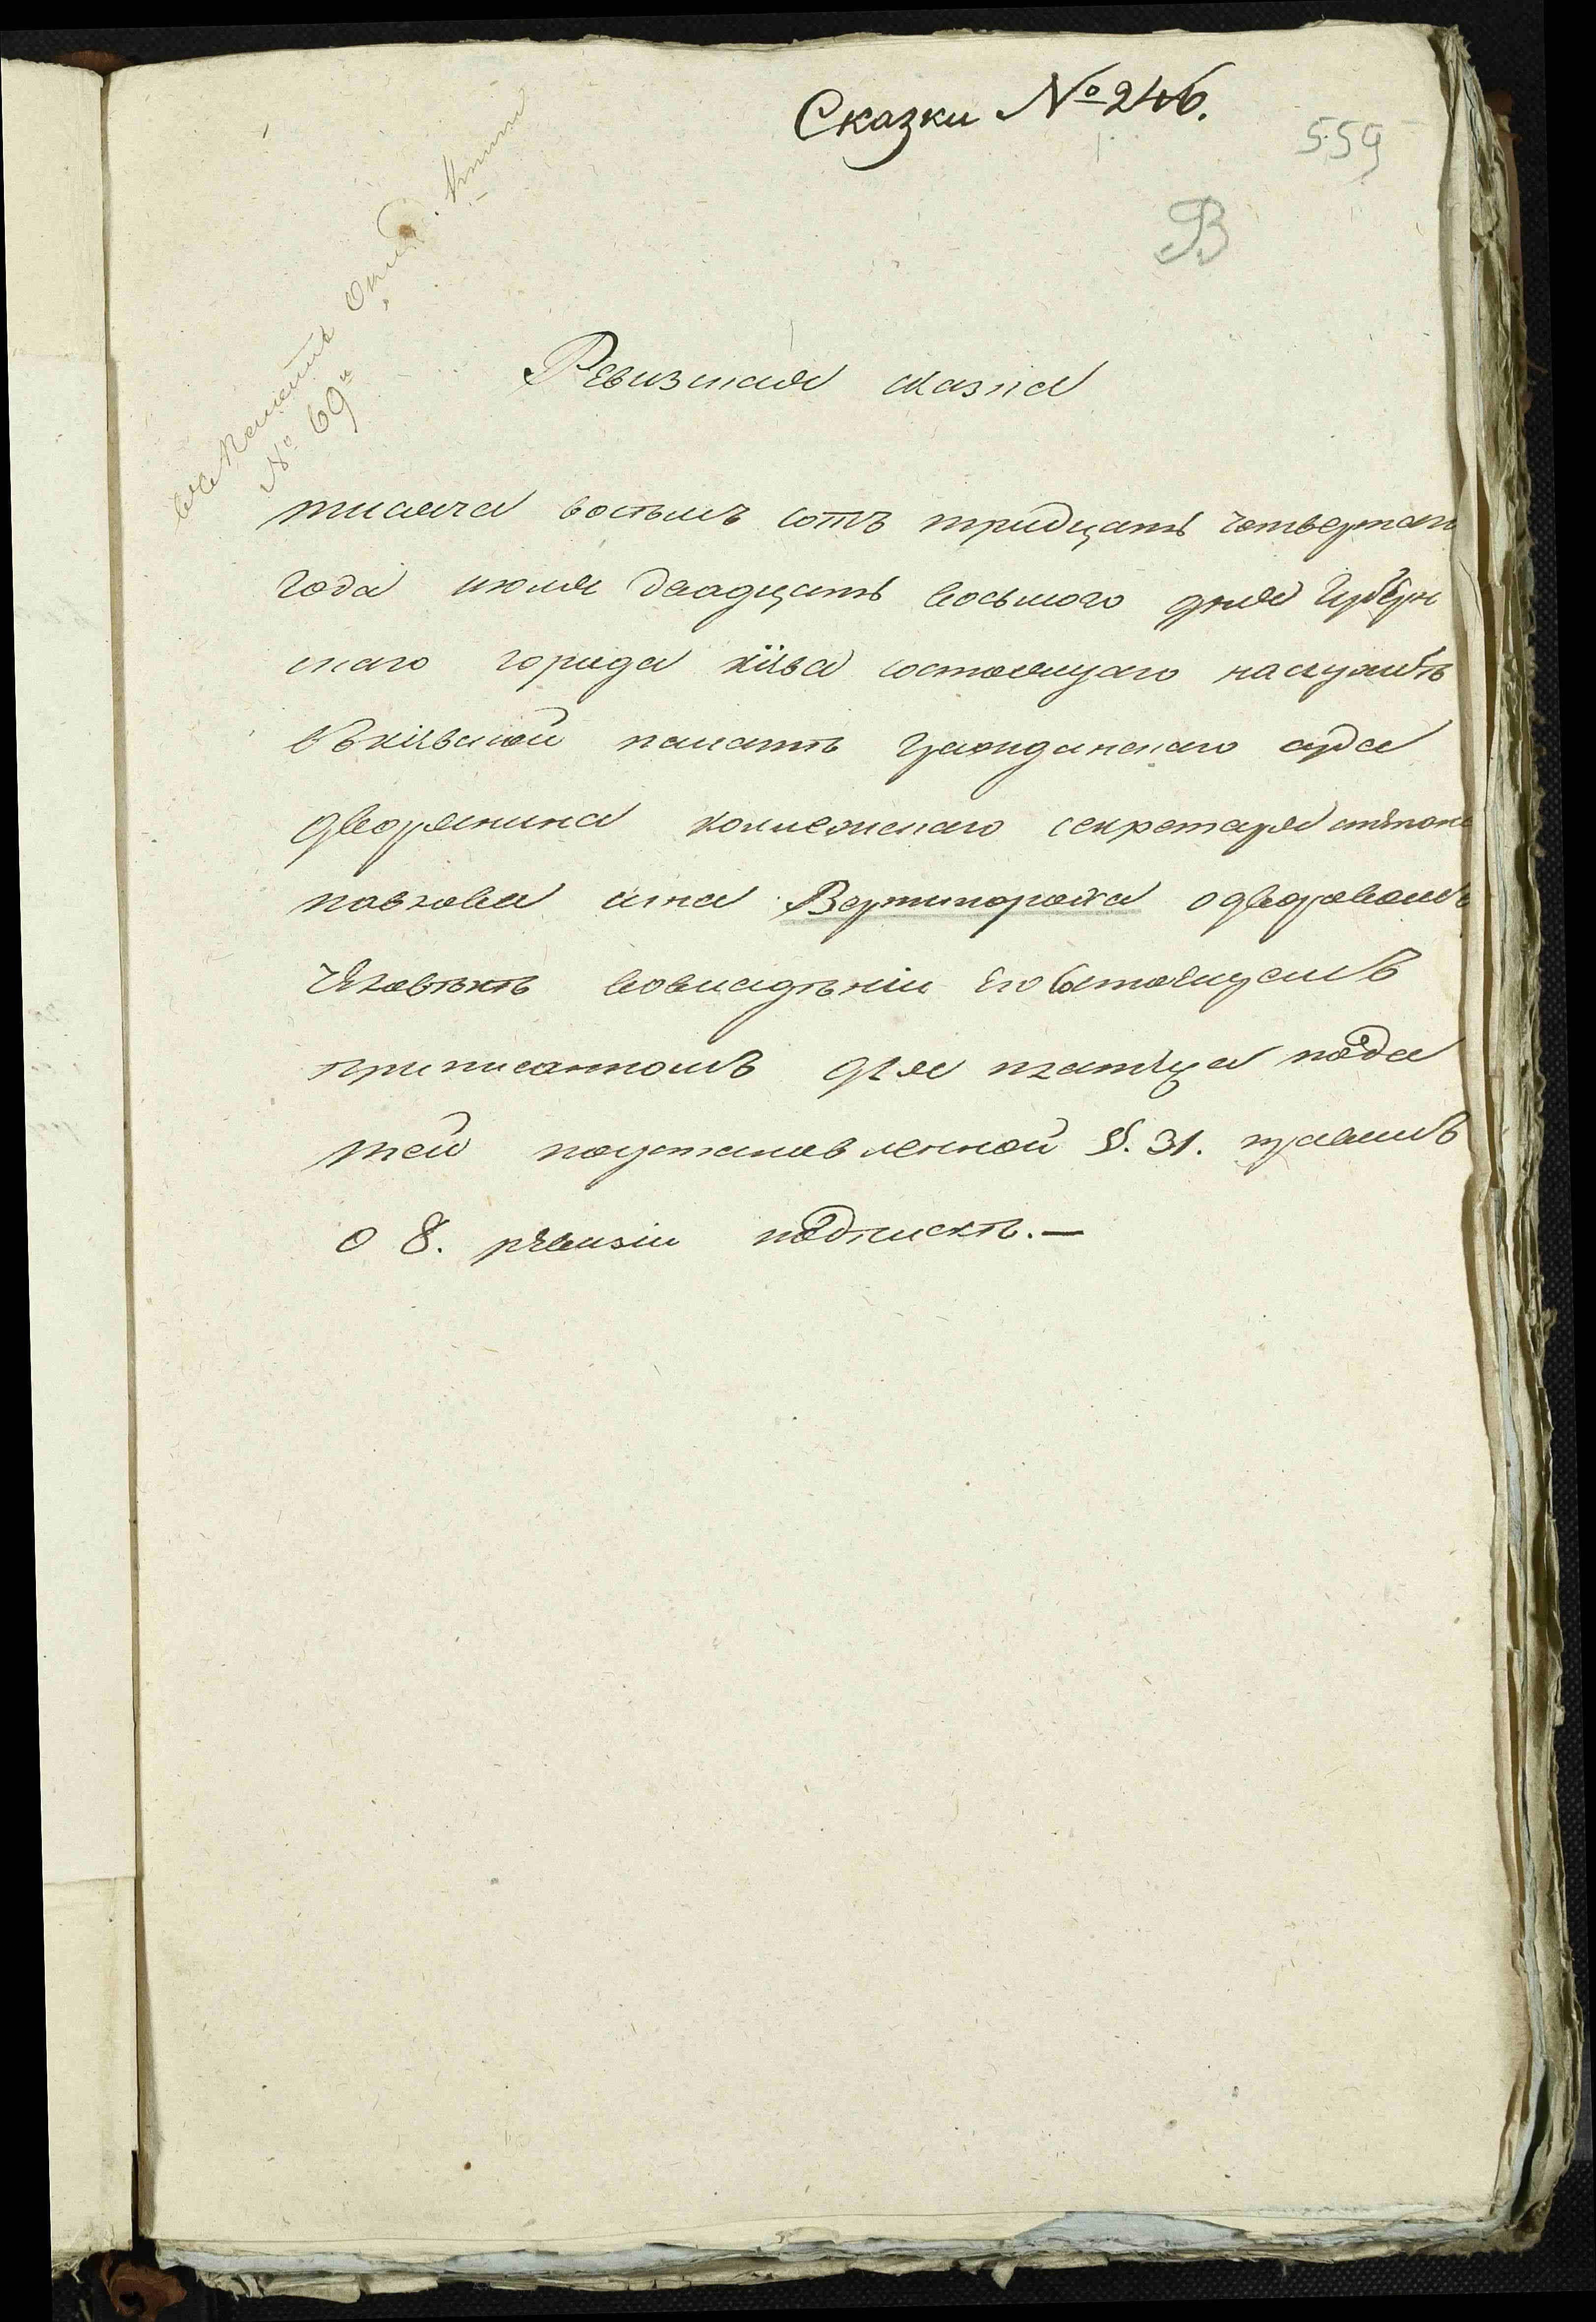 Сказки № 246.
559
В
№ 69й
Ревизская сказка
тисяча восьмъ сотъ тридцать четвертаго
года июля двадцать восьмого дня Губерн
скаго города кіева состоящаго наслужбѣ
въкіевской палатѣ гражданскаго суда
дворянина коллежскаго секретаря антона
павлова сина Вертипороха одворовомъ
Человѣкѣ вовладѣніи его состоящемъ
приписанномъ для платежа пода
тей поустановленной §. 31. правилъ
о 8. ревизіи подпискѣ.—